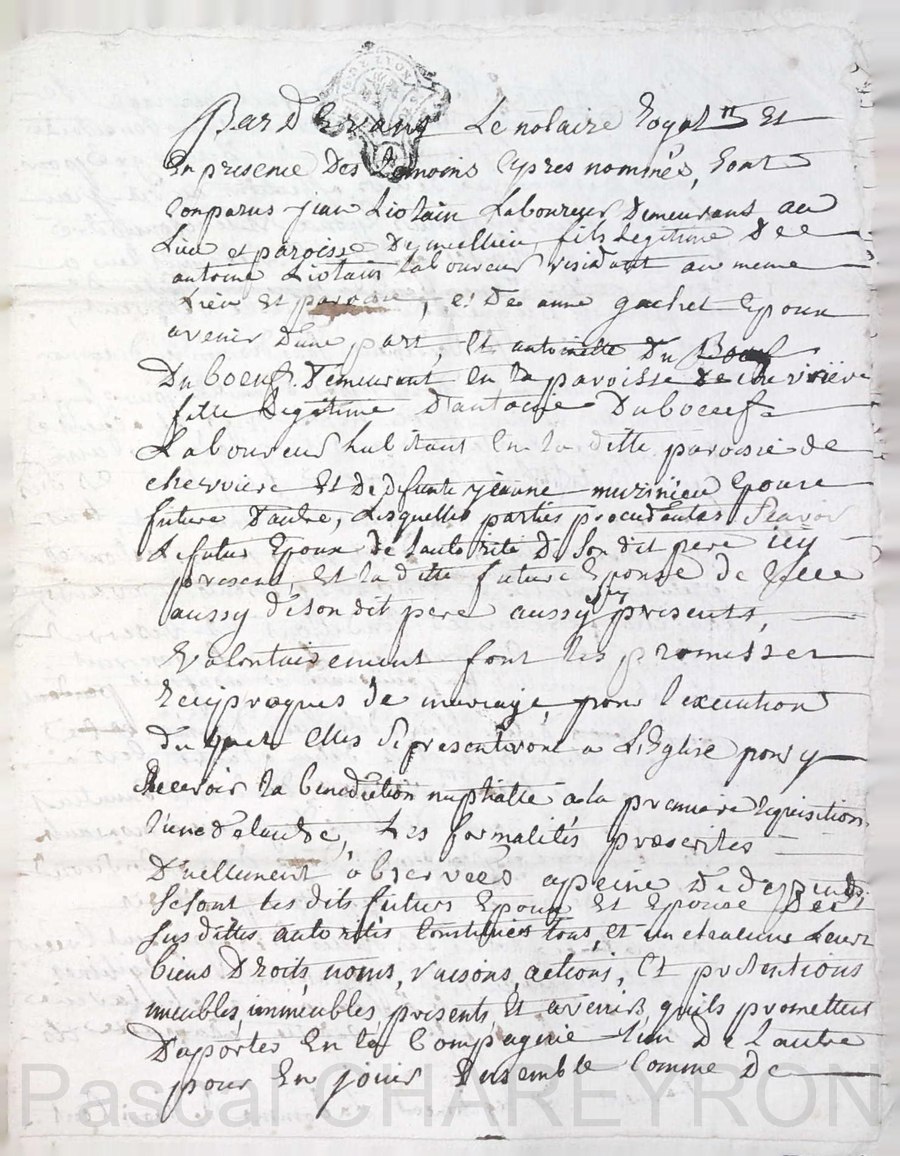 Par Devant Le notaire Royal Et
En presence Des temoins cy apres nommés, sont
Comparus jean Liotain Laboureur Demeurant au
Lieu et paroisse De meillieu, fils Legitime De
antoine Liotain laboureur residant au meme
Lieu Et paroisse, et De anne gachet Epoux
avenir D'une part, Et antoinette Du Boeuf
Duboeuf Demeurant En la paroisse de
fille Legitime D'antoine Duboeuf
Laboureur habitant En la ditte paroisse de
cherviere Et De defunte jeanne Epouse
future D'autre, Lesquelles parties procedantes Scavoir
Le futur Epoux de L'autorité De Son dit pere icy
present, Et la ditte future Epouse de Celle
aussy de son dit pere aussy icy presents,
Volontairement font les promesses
Reciproques de mariage, pour L'execution
Du quel Elles Se presenteront a L'Eglise pour y
Recevoir la benediction nuptialle a la premiere Requisition
L'une de lautre, Les formalités prescrites
Duellement observées a peine De depends
Se sont les dits futurs Epoux Et Epouse Des
Sus dittes autorités Constitués tous, et un chacuns Leurs
biens, Droits, noms, raisons, actions, Et pretentions
meubles, immeubles presents Et avenirs, qu'ils promettent
D'aporter En la Compagnie L'un De L'autre
pour En jouir Ensemble Comme De
Pascal CHAREYRON